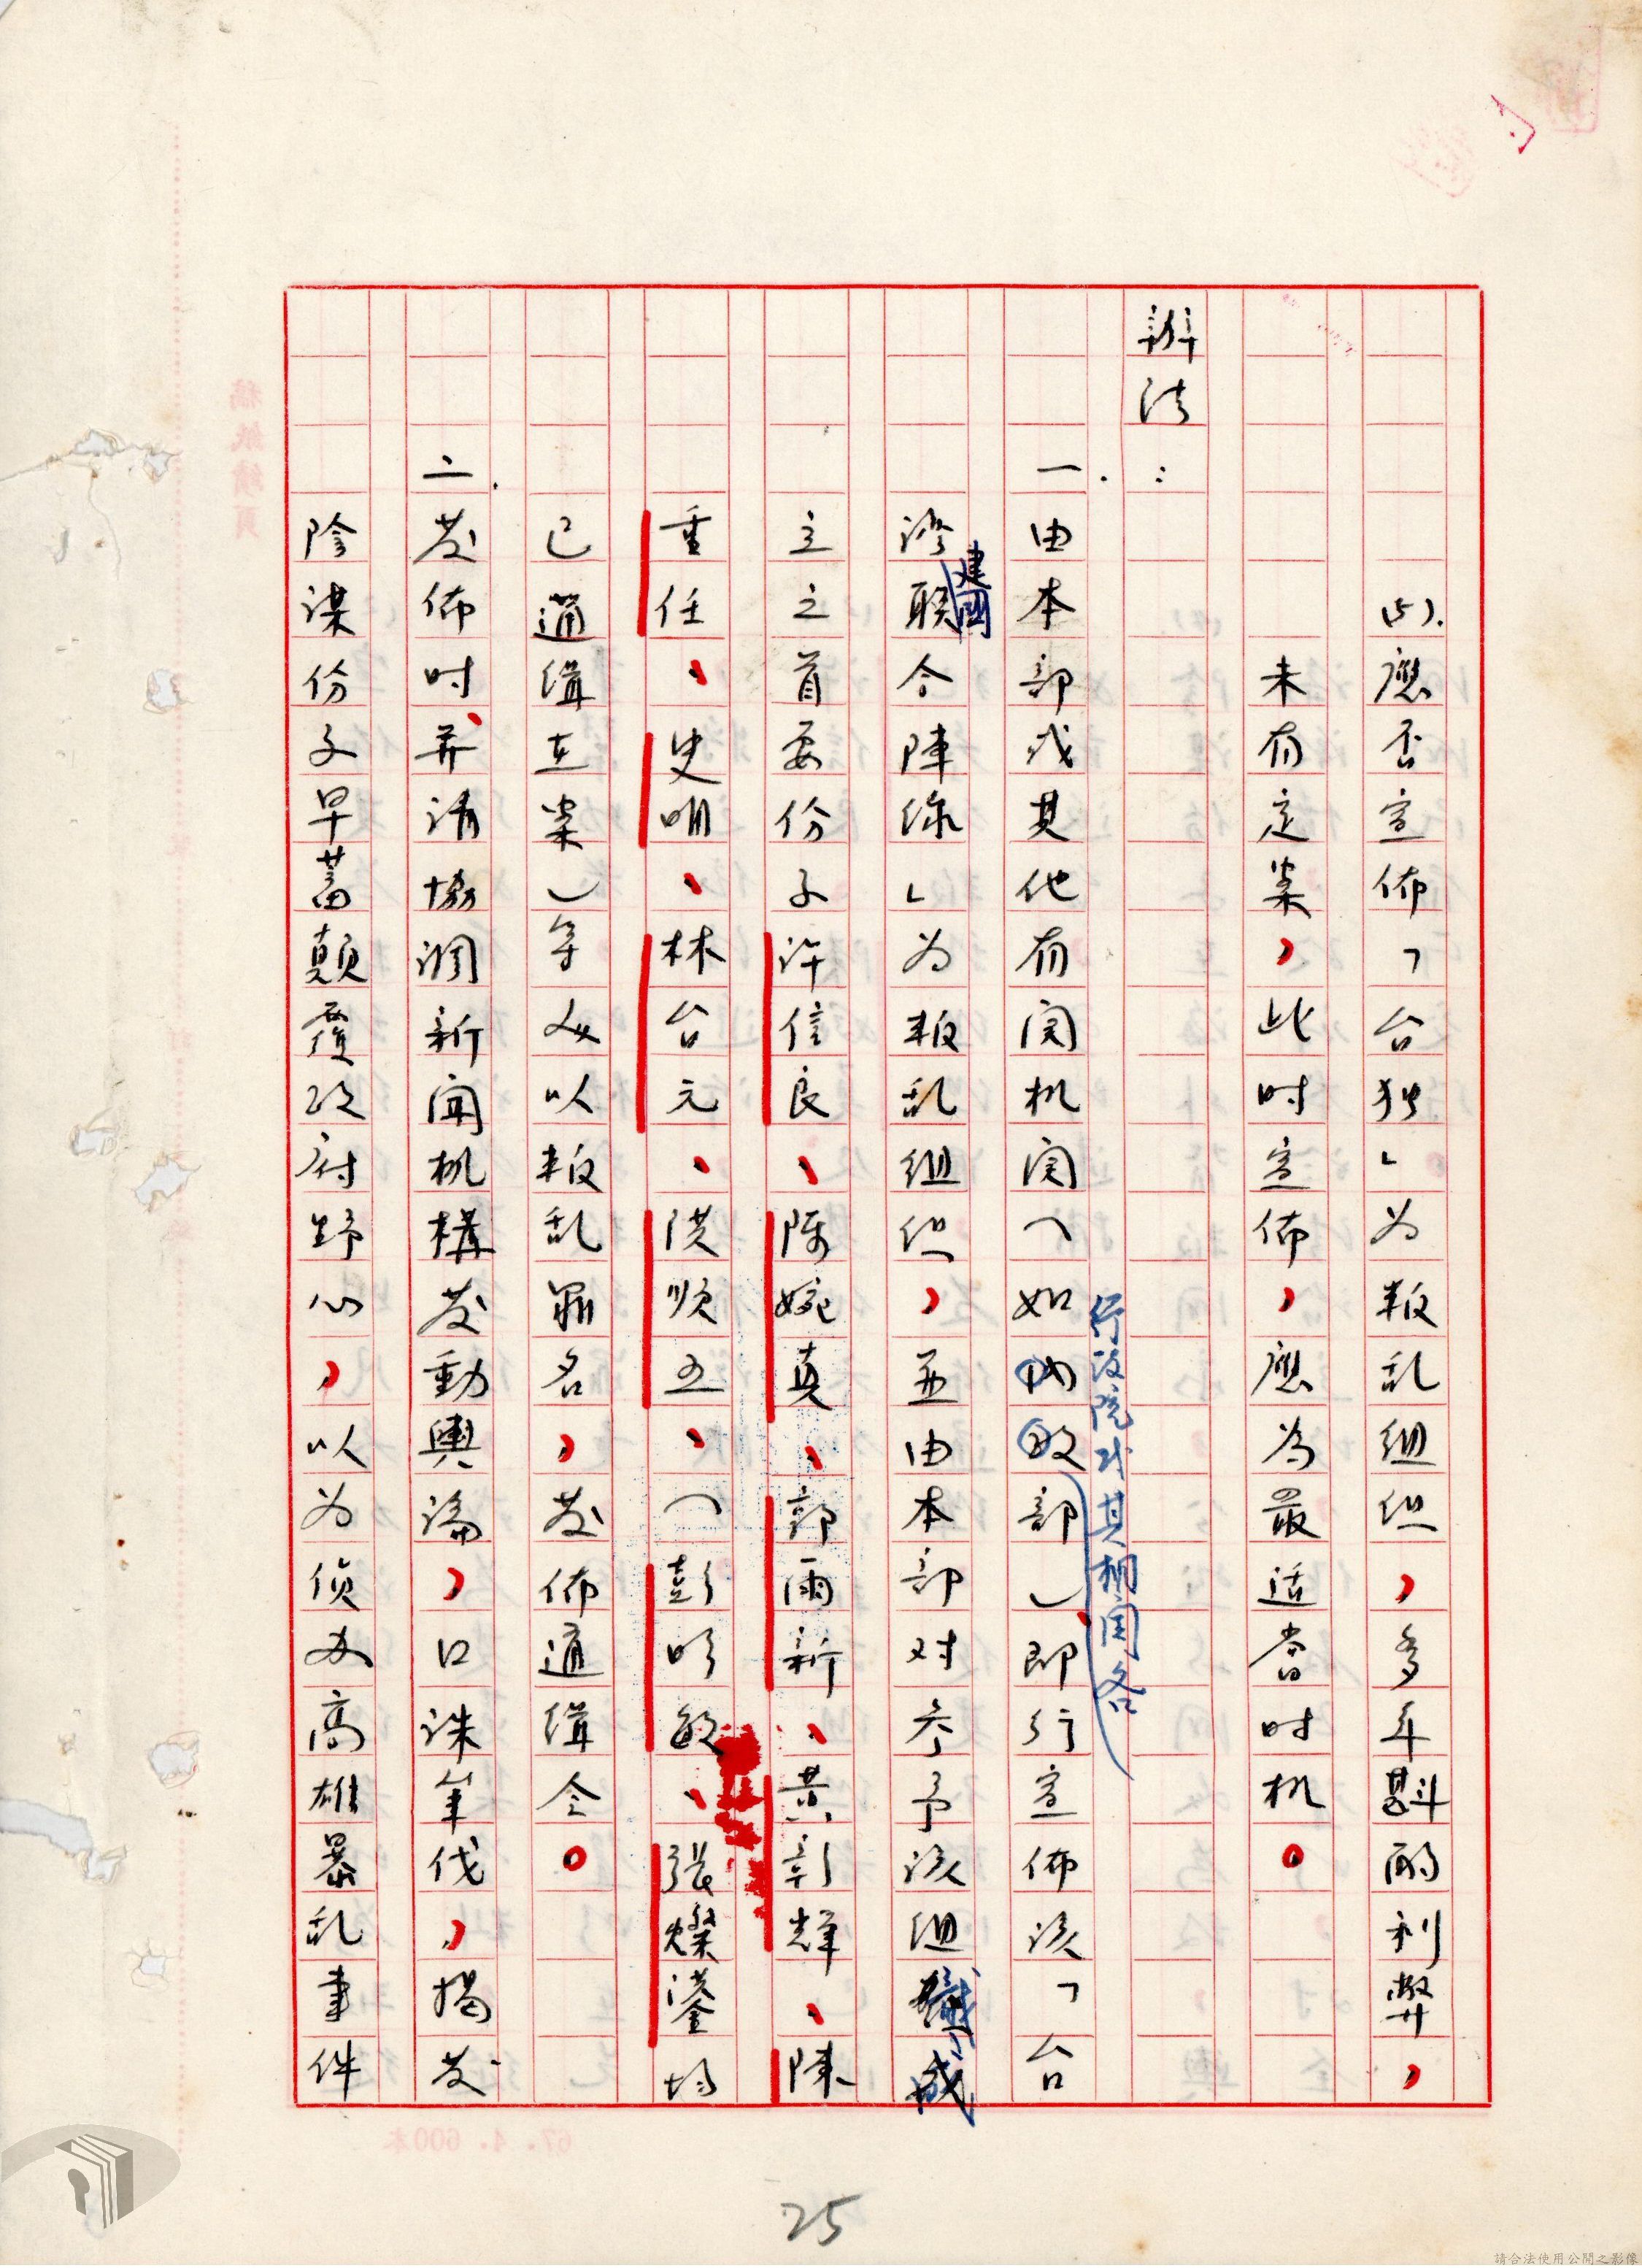 (5).應否宣佈「台独」为叛乱組织，多年斟酌利弊，
未有定案，此时宣佈，應為最适當时机。
辦法：
一.由本部或其他有関机関（如内政部）即行宣佈该「台
行政院或其相関各
湾建國联合陣線」为叛乱組织，並由本部对参予该組織成
立之首要份子許信良、陳婉真、郭雨新、黃彰輝、陳
重任、史明、林台元、洪順五、（彭明敏、張燦鍙均
已通緝在案）等人以叛乱罪名，发佈通緝令。
二.发佈时，并請協調新聞机構发動輿論，口誅筆伐，揭发
陰謀份子早蓄顛覆政府野心，以为侦办高雄暴乱事件
25
稿紙續頁
67.4.600本
請合法使用公開之影像